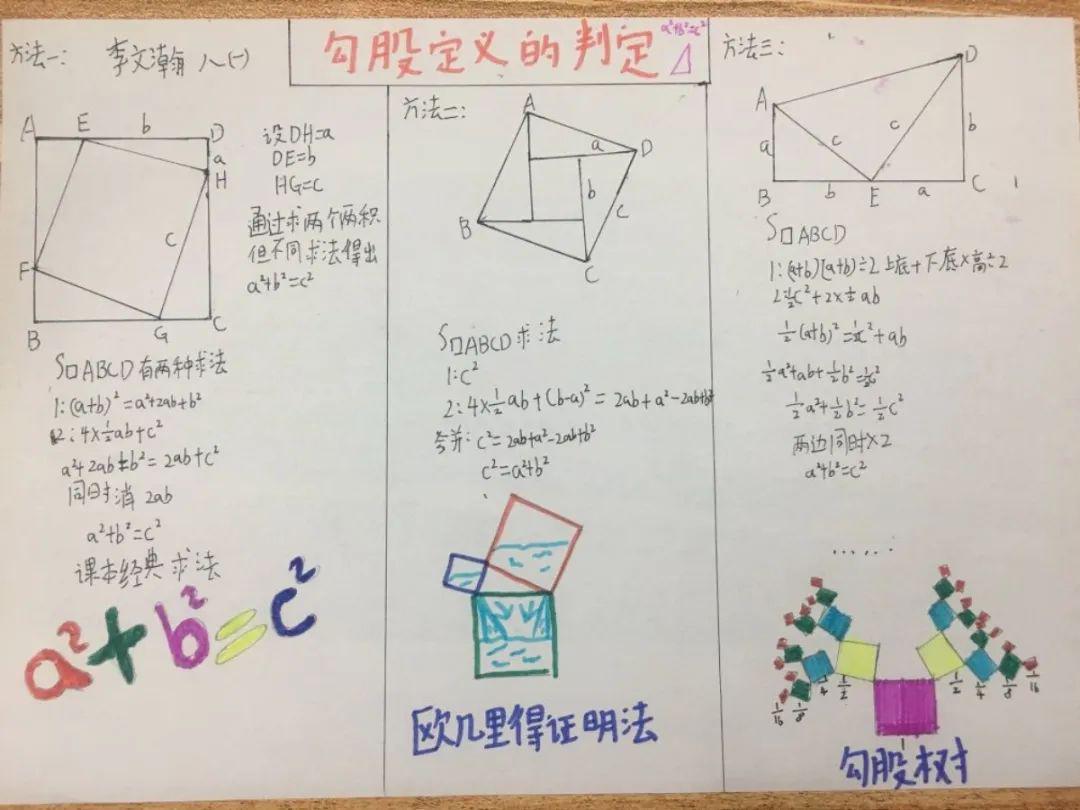 勾股定义的判定
a²+b²=c²
方法一:
李文瀚 八(一)
A E b D
a
H
C
F
B G C
设DH=a
DE=b
HG=c
通过求两个两积
但不同求法得出
a²+b²=c²
S□ABCD有两种求法
1:(a+b)²=a²+2ab+b²
2:4×½ab+c²
a²+2ab+b²=2ab+c²
同时消2ab
a²+b²=c²
课本经典求法
a²+b²=c²
方法二:
A
a D
b
B C
C
S□ABCD求法
1:c²
2:4×½ab+(b-a)²=2ab+a²-2ab+b²
c²=2ab+a²-2ab+b²
c²=a²+b²
欧几里得证明法
方法三:
D
A
c c b
a
B b E a C
S□ABCD
1:(a+b)(a+b)÷2 上底+下底×高÷2
2:½c²+2×½ab
½(a+b)²=½c²+ab
½a²+ab+½b²=½c²
½a²+½b²=½c²
两边同时×2
a²+b²=c²
......
1/16 1/8 1/4 1/2 1/2 1/4 1/8 1/16
1
勾股树